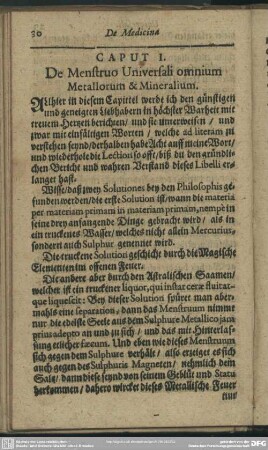 80 De Medicina
CAPUT I.
De Menstruo Universali omnium
Metallorum & Mineralium.
Allhier in diesem Capittel werde ich den günstigen
und geneigten Liebhabern in höchster Warheit mit
treuem Hertzen berichten / und sie unterweisen / und
zwar mit einfältigen Worten / welche ad literam zu
verstehen seynd / derhalben habe Acht auff meine Wort /
und wiederhole die Lection so offt / biß du den gründli-
chen Bericht und wahren Verstand dieses Libelli er-
langet hast.
Wisse / daß zwey Solutiones bey den Philosophis ge-
funden werden / die erste Solution ist / wann die materia
per materiam primam in materiam primam, nempè in
seine drey anfangende Dinge gebracht wird / als in
ein truckenes Wasser / welches nicht allein Mercurius,
sondern auch Sulphur genennet wird.
Die truckene Solution geschicht durch die Magische
Elementen im offenen Feuer.
Die andere aber durch den Astralischen Saamen /
welcher ist ein truckener liquor, qui instar ceræ fluit at-
que liquescit: Bey dieser Solution spüret man aber-
mahls eine separation, dann das Menstruum nimmt
nur die edelste Seele aus dem Sulphure Metallico jam
prius adepto an und zu sich / und das mit Hinterlas-
sung etlicher fæcum. Und eben wie dieses Menstruum
sich gegen dem Sulphure verhält / also erzeiget es sich
auch gegen des Sulphuris Magneten / nehmlich dem
Saltz / dann diese seynd von seinem Geblüt und Statu
herkommen / dahero wircket dieses Metallische Feuer